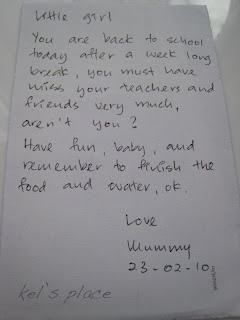 Little girl
You are back to school
today after a week long
break, you must have
miss your teachers and
friends very much,
aren't you?
Have fun, baby, and
remember to finish the
food and water, ok.
Love
Mummy
23-02-10
kel's place